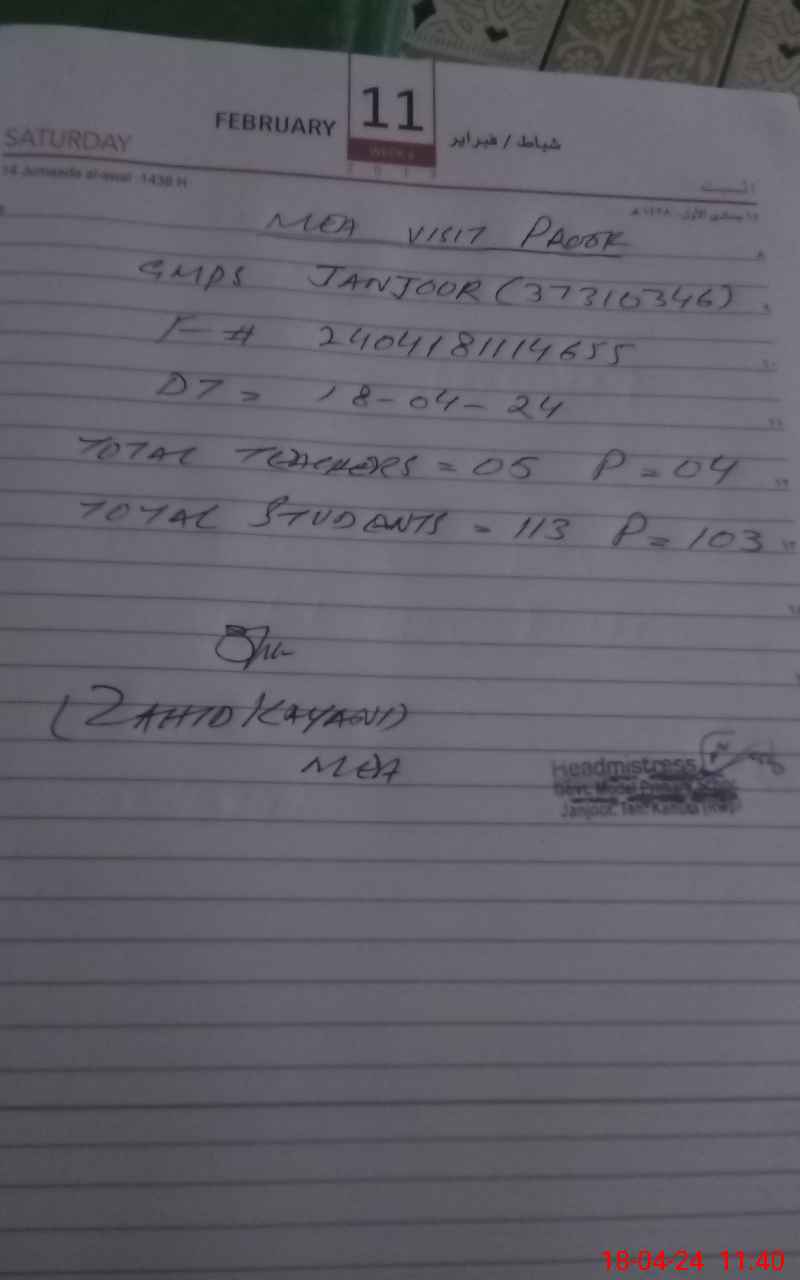 SATURDAY FEBRUARY 11 شباط / فبراير السبت
WEEK 6
2 0 1 7
14 Jumaada al-awal 1438 H
MEA VISIT PROOF
GMPS JANJOOR (37310346)
F-# 2404181114655
DT = 18-04-24
TOTAL TEACHERS = 05 P = 04
TOTAL STUDENTS = 113 P = 103
(ZAHID KAYANI)
MEA
Headmistress
Govt. Model Primary School
Janjoor, Teh: Kahuta (Rwp)
18-04-24 11:40